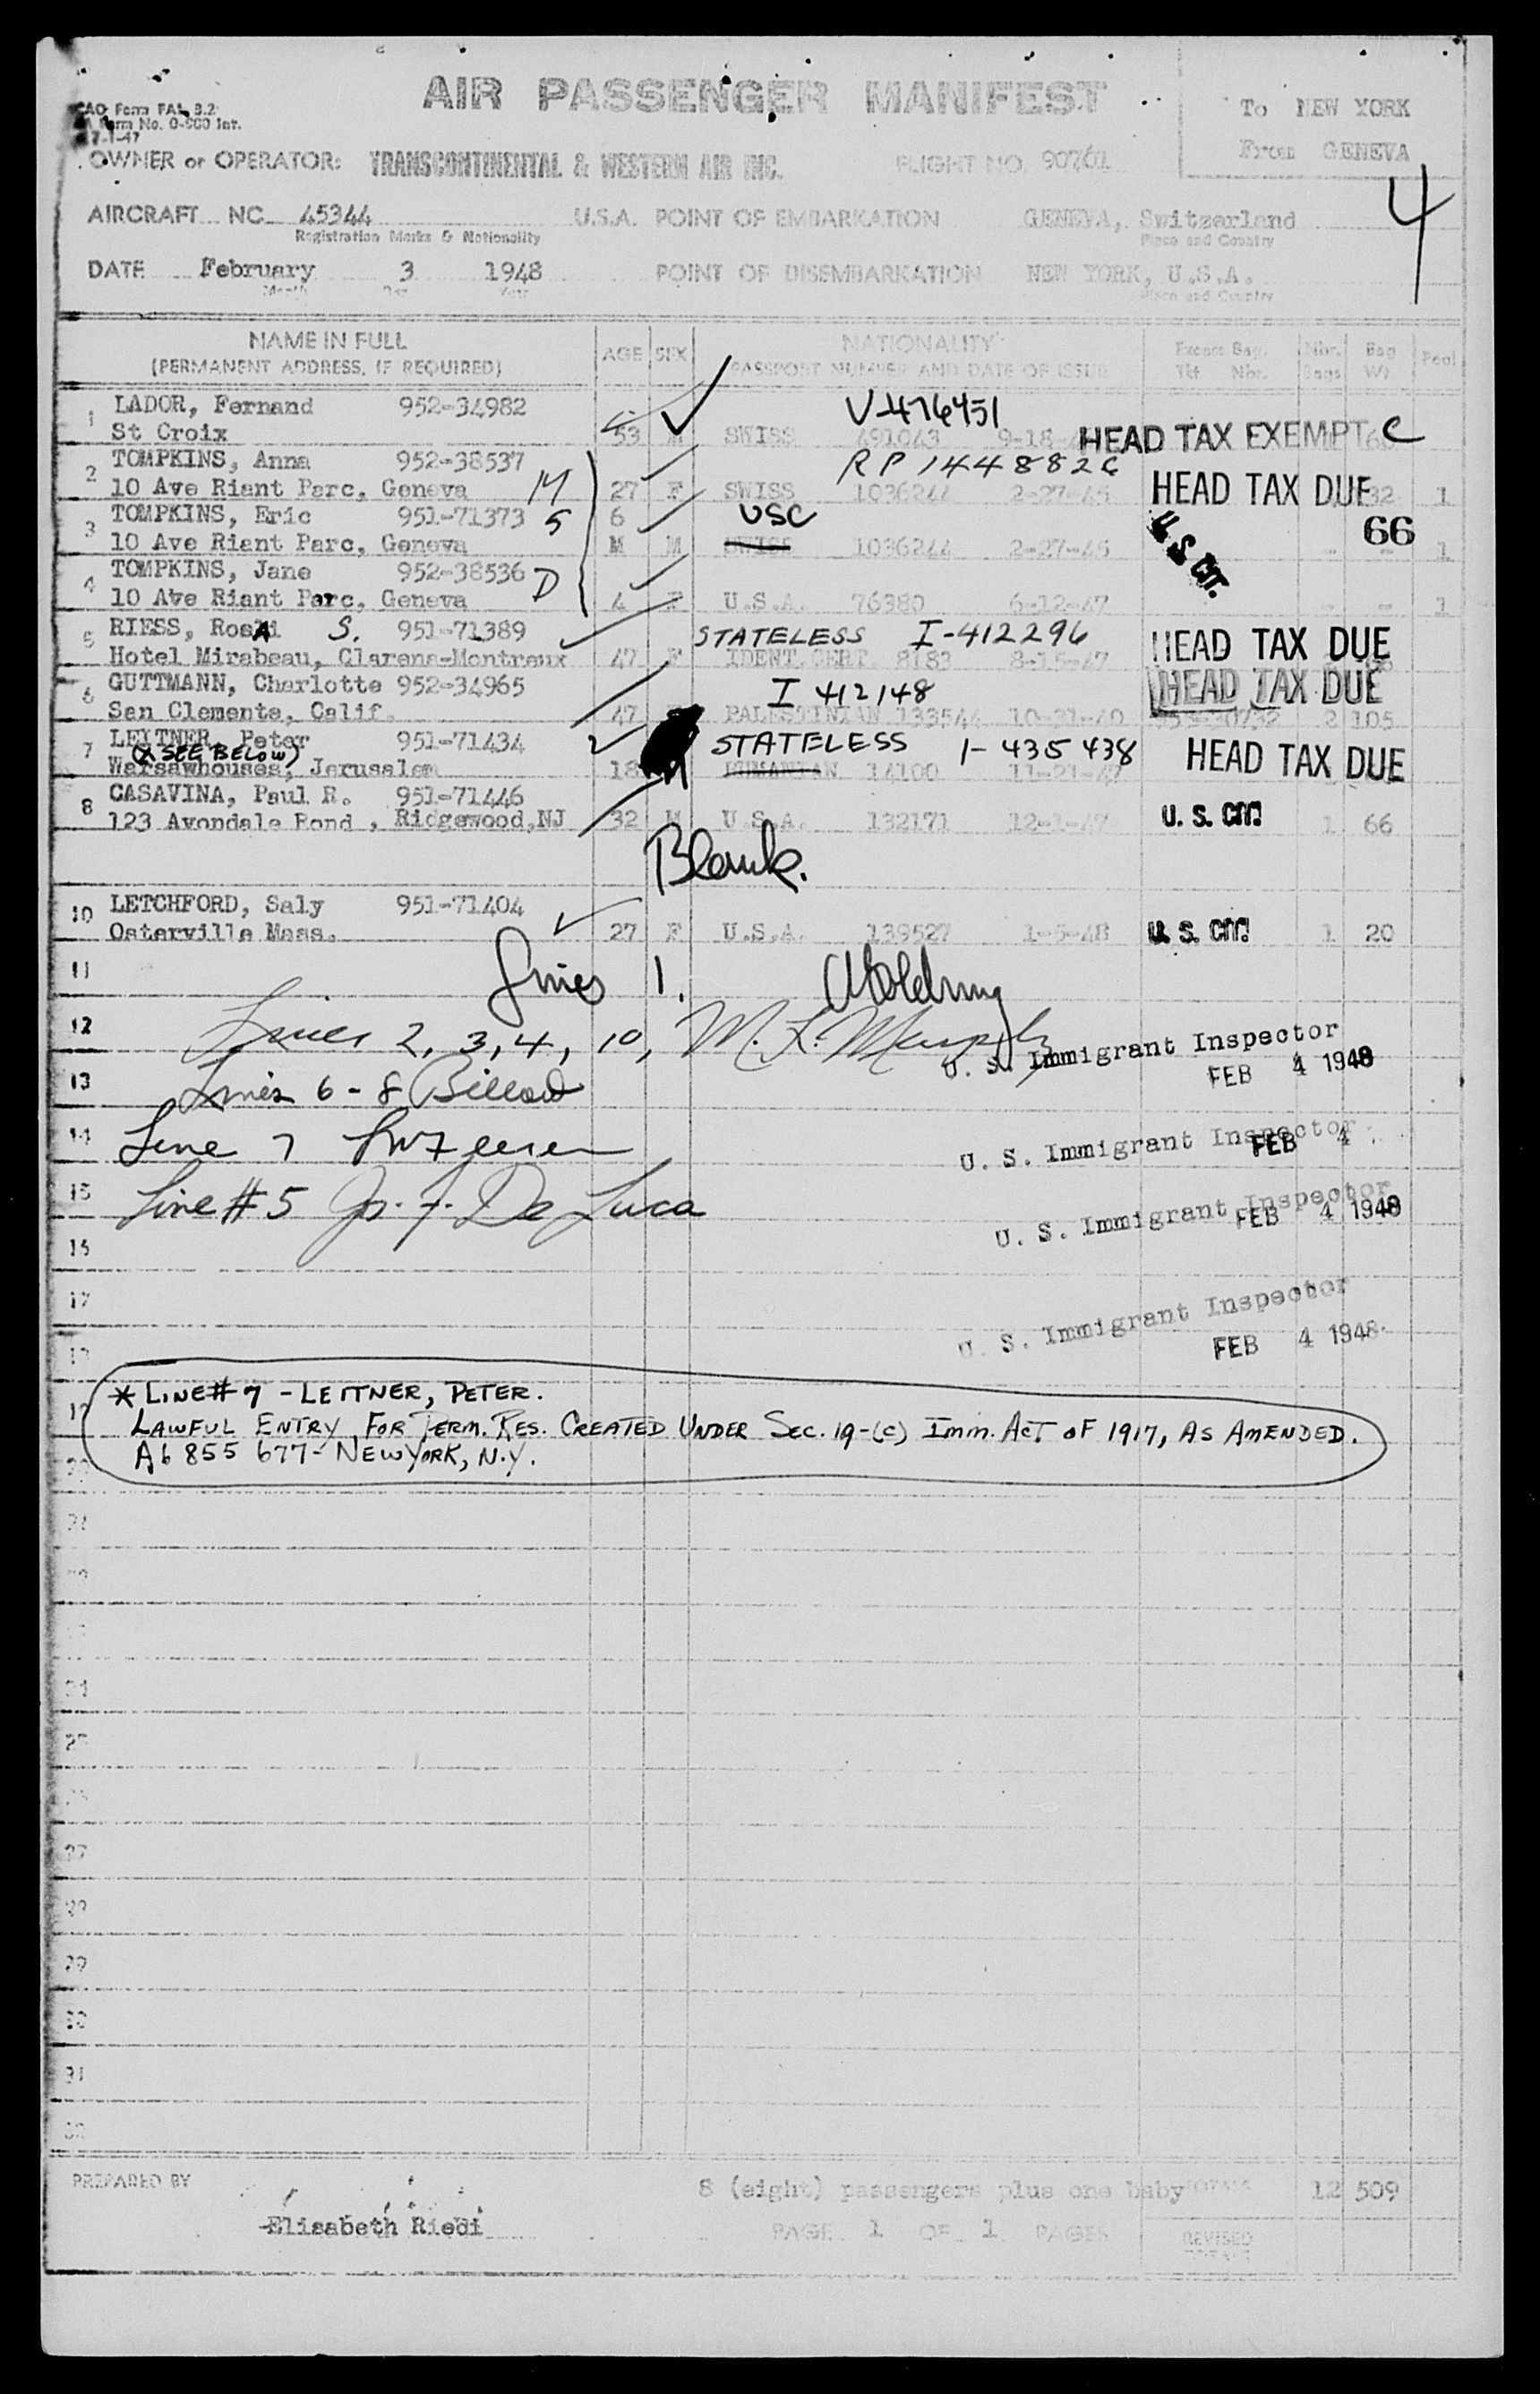 AIR PASSENGER MANIFEST
To NEW YORK
From GENEVA
ICAO Form FAL 3.2
Form No. 0-900 Int.
7-1-47
OWNER or OPERATOR: TRANSCONTINENTAL & WESTERN AIR INC. FLIGHT NO. 90761
4
AIRCRAFT NC 45344 U.S.A. POINT OF EMBARKATION GENEVA, Switzerland
Registration Marks & Nationality Place and Country
DATE February 3 1948 POINT OF DISEMBARKATION NEW YORK, U.S.A.
Month Day Year Place and Country
NAME IN FULL AGE SEX NATIONALITY Excess Bag. Nbr. Bag Pool
(PERMANENT ADDRESS, IF REQUIRED) PASSPORT NUMBER AND DATE OF ISSUE Tkt Nbr. Bags Wt
1 LADOR, Fernand 952-34982 V-476451
St Croix 53 M SWISS 491043 9-18- HEAD TAX EXEMPT C
2 TOMPKINS, Anna 952-38537 RP 1448826
10 Ave Riant Parc, Geneva M 27 F SWISS 1036244 2-27-45 HEAD TAX DUE 32 1
3 TOMPKINS, Eric 951-71373 S 6 USC
10 Ave Riant Parc, Geneva M M SWISS 1036244 2-27-45 U.S. CIT. - 66 1
4 TOMPKINS, Jane 952-38536 D
10 Ave Riant Parc, Geneva 4 F U.S.A. 76380 6-12-47 - - 1
5 RIESS, RosA S. 951-71389 STATELESS I-412296 HEAD TAX DUE
Hotel Mirabeau, Clarens-Montreux 47 F IDENT.CERT. 8183 8-15-47
6 GUTTMANN, Charlotte 952-34965 I 412148 HEAD TAX DUE
San Clemente, Calif. 47 PALESTINIAN 133544 10-31-40 953-30732 2 105
7 LEITNER, Peter 951-71434 STATELESS 1-435438 HEAD TAX DUE
(* SEE BELOW)
Warsawhouses, Jerusalem 18 RUMANIAN 14100 11-21-47
8 CASAVINA, Paul R. 951-71446
123 Avondale Rond, Ridgewood,NJ 32 M U.S.A. 132171 12-1-47 U. S. CIT. 1 66
Blank.
10 LETCHFORD, Saly 951-71404
Osterville Mass. 27 F U.S.A. 139527 1-5-48 U. S. CIT. 1 20
11 Lines 1.
12 Lines 2, 3, 4, 10, M. L. Murphy
U. S. Immigrant Inspector
FEB 4 1948
13 Lines 6 - 8
14 Line 7
U. S. Immigrant Inspector
FEB 4
15 Line # 5 Jos. F. De Luca
U. S. Immigrant Inspector
FEB 4 1948
16
17
U. S. Immigrant Inspector
FEB 4 1948
18
19 * LINE # 7 - LEITNER, PETER.
LAWFUL ENTRY FOR PERM. RES. CREATED UNDER SEC. 19-(c) IMM. ACT OF 1917, AS AMENDED.
20 A6 855 677 - NEW YORK, N.Y.
21
24
25
27
29
30
31
32
PREPARED BY 8 (eight) passengers plus one baby TOTALS 12 509
Elisabeth Riedi PAGE 1 OF 1 PAGES REVISED